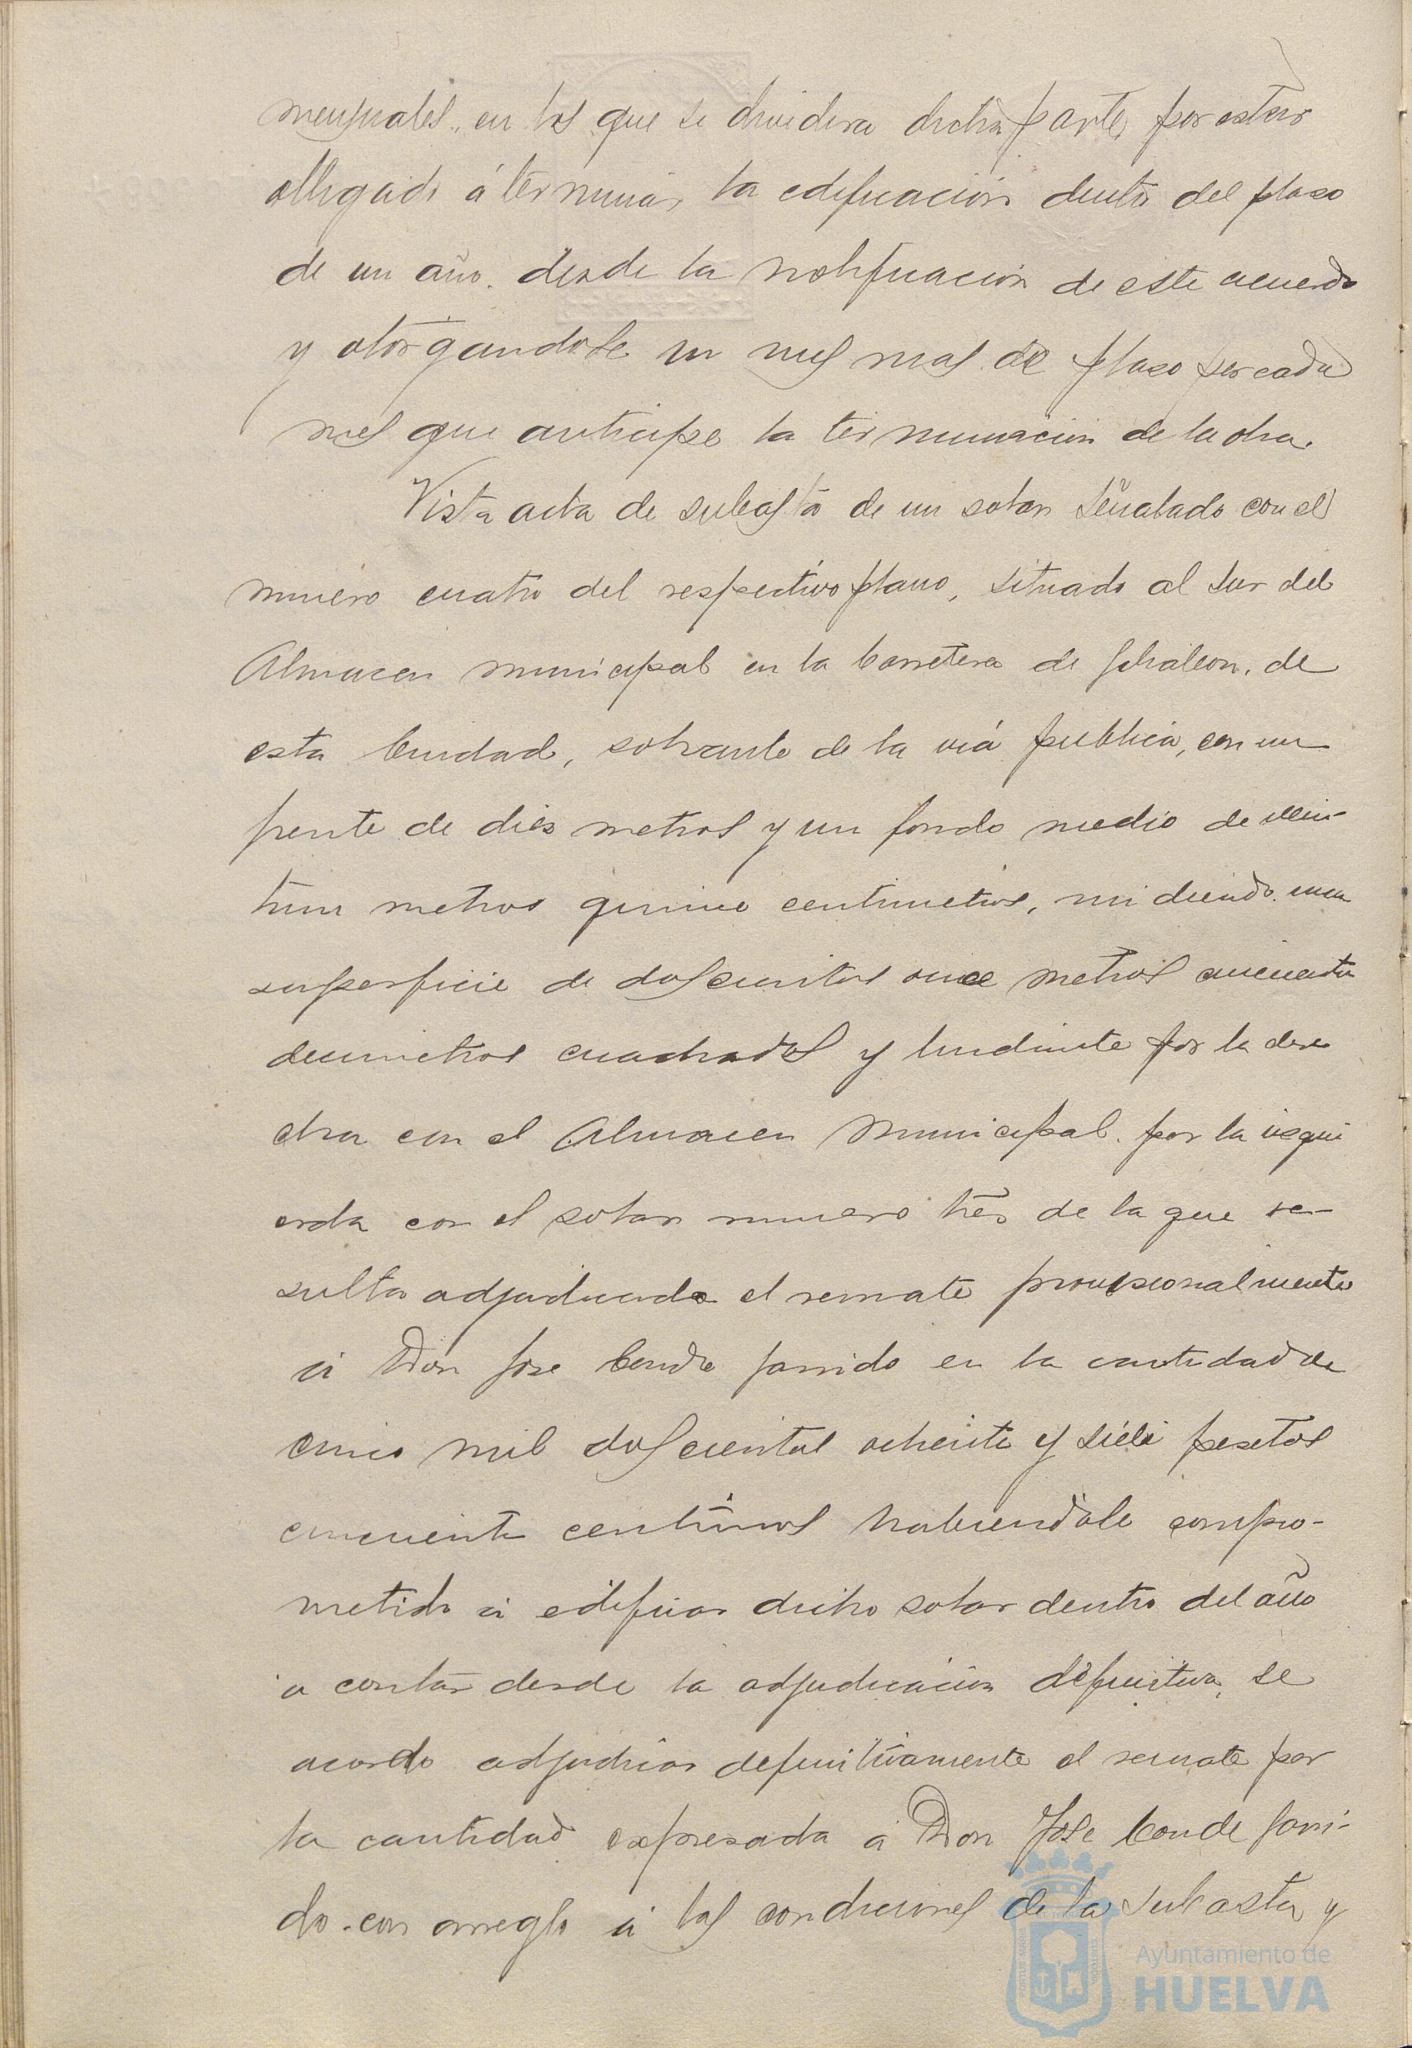 mensuales, en los que se dividira dicha parte, por estar
obligado á terminar la edificación dentro del plaso
de un año desde la notificación de este acuerdo
y otorgandosele un mes mas de plaso por cada
mes que anticipe la terminación de la obra.
Vista acta de subasta de un solar señalado con el
numero cuatro del respectivo plano, situado al Sur del
Almacen municipal en la Carretera de Gibraleon, de
esta Ciudad, sobrante de la via publica, con un
frente de dies metros y un fondo medio de vein-
tiun metros quince centimetros, midiendo una
superficie de doscientos once metros cincuenta
decimetros cuadrados y lindante por la dere
cha con el Almacen Municipal, por la isqui
erda con el solar numero tres de la que re-
sulta adjudicado el remate provisionalmente
á Don Jose Conde Garrido en la cantidad de
cinco mil doscientas ochenta y siete pesetas
cincuenta centimos habiendose compro-
metido á edificar dicho solar dentro del año
a contar desde la adjudicación definitiva, se
acordo adjudicar definitivamente el remate por
la cantidad expresada á Don Jose Conde Garri-
do con arreglo á las condiciones de la subasta y
Ayuntamiento de
HUELVA